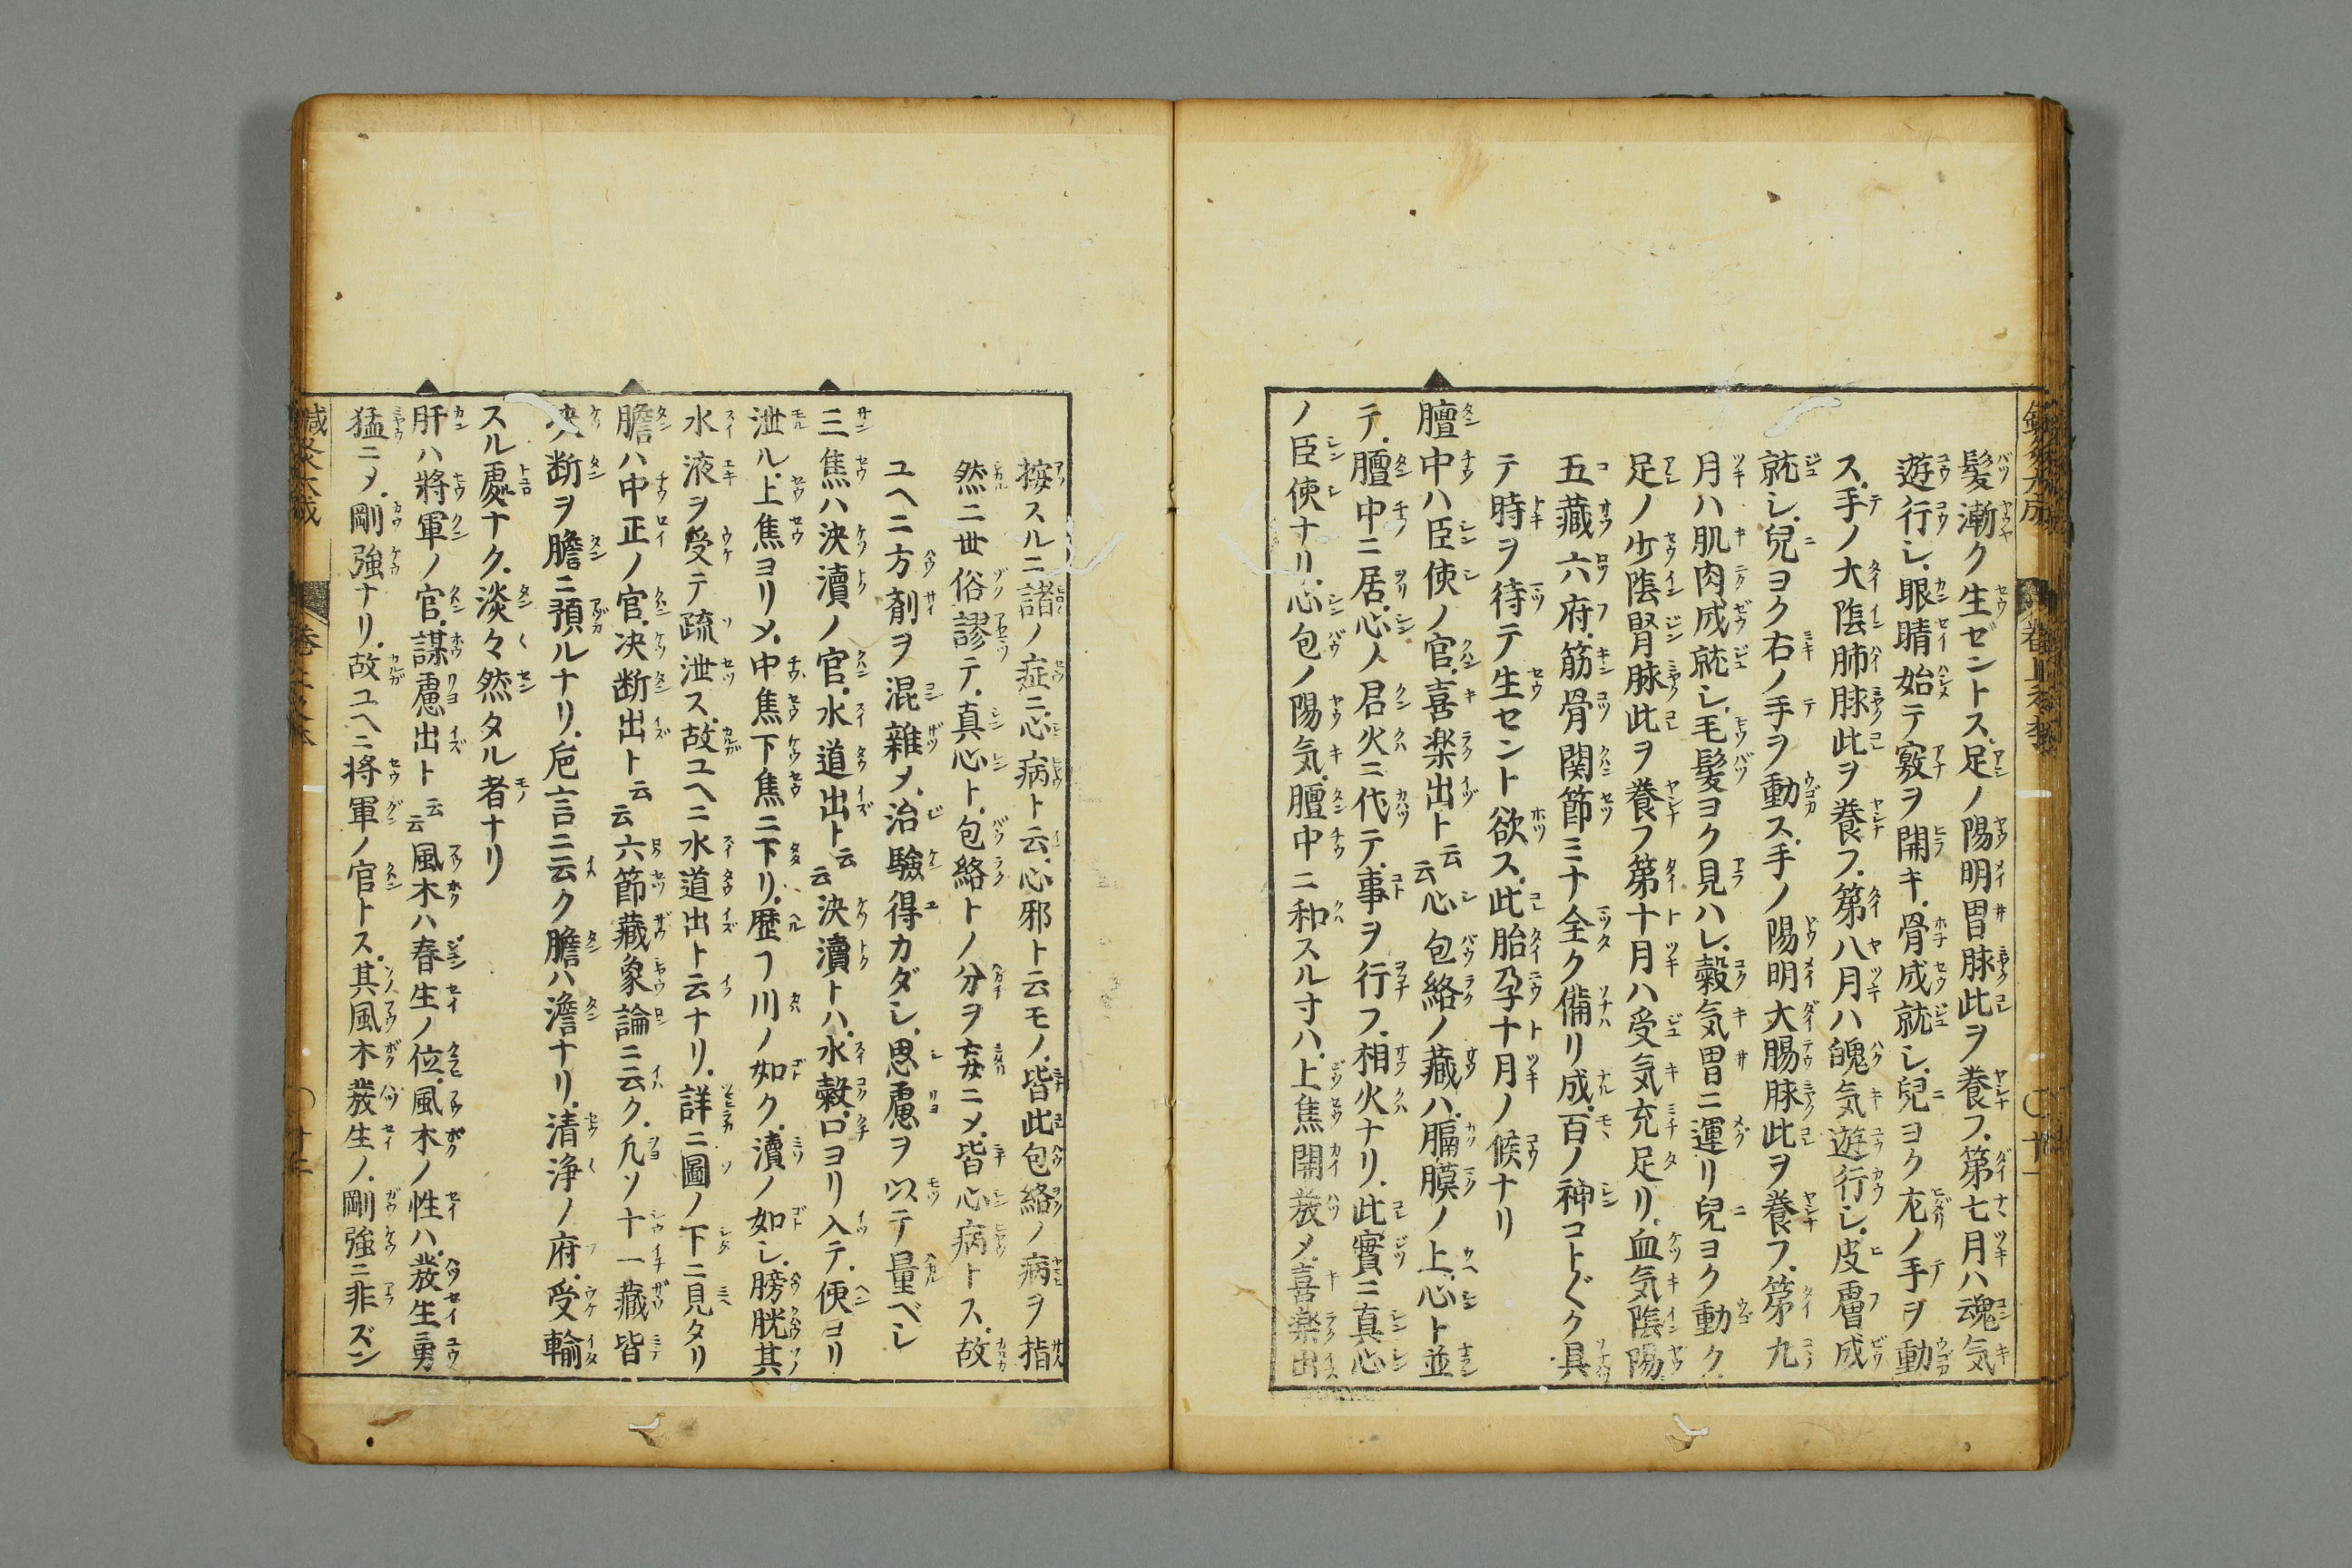 髪漸ク生ゼントス足ノ陽明胃脉此ヲ養フ第七月ハ魂気
遊行シ眼睛始テ竅ヲ開キ骨成就シ兒ヨク左ノ手ヲ動
ス手ノ大陰肺脉此ヲ養フ第八月ハ魄気遊行シ皮膚成
就シ兒ヨク右ノ手ヲ動ス手ノ陽明大腸脉此ヲ養フ第九
月ハ肌肉成就シ毛髪ヨク見ハレ穀気胃ニ運リ兒ヨク動ク
足ノ少陰腎脉此ヲ養フ第十月ハ受気充足リ血気陰陽
五藏六府筋骨関節ミナ全ク備リ成百ノ神コト〲ク具
テ時ヲ待テ生セント欲ス此胎孕十月ノ候ナリ
膻中ハ臣使ノ官喜楽出ト云云心包絡ノ藏ハ膈膜ノ上心ト並
テ膻中ニ居心ノ君火ニ代テ事ヲ行フ相火ナリ此實ニ真心
ノ臣使ナリ心包ノ陽気膻中ニ和スル寸ハ上焦開發メ喜楽出
按スルニ諸ノ症ニ心病ト云心邪ト云モノ皆此包絡ノ病ヲ指
然ニ世俗謬テ真心ト包絡トノ分ヲ妄ニメ皆心病トス故
ユヘニ方剤ヲ混雑メ治驗得カダシ思慮ヲ以テ量ベシ
三焦ハ決瀆ノ官水道出ト云云決瀆トハ水穀口ヨリ入テ便ヨリ
泄ル上焦ヨリメ中焦下焦ニ下リ歴フ川ノ如ク瀆ノ如シ膀胱其
水液ヲ受テ疏泄ス故ユヘニ水道出ト云ナリ詳ニ圖ノ下ニ見タリ
膽ハ中正ノ官决断出ト云云六節藏象論ニ云ク凢ソ十一藏皆
决断ヲ膽ニ預ルナリ巵言ニ云ク膽ハ澹ナリ清浄ノ府受輸
スル處ナク淡々然タル者ナリ
肝ハ將軍ノ官謀慮出ト云云風木ハ春生ノ位風木ノ性ハ發生勇
猛ニメ剛強ナリ故ユヘニ将軍ノ官トス其風木發生ノ剛強ニ非ズン